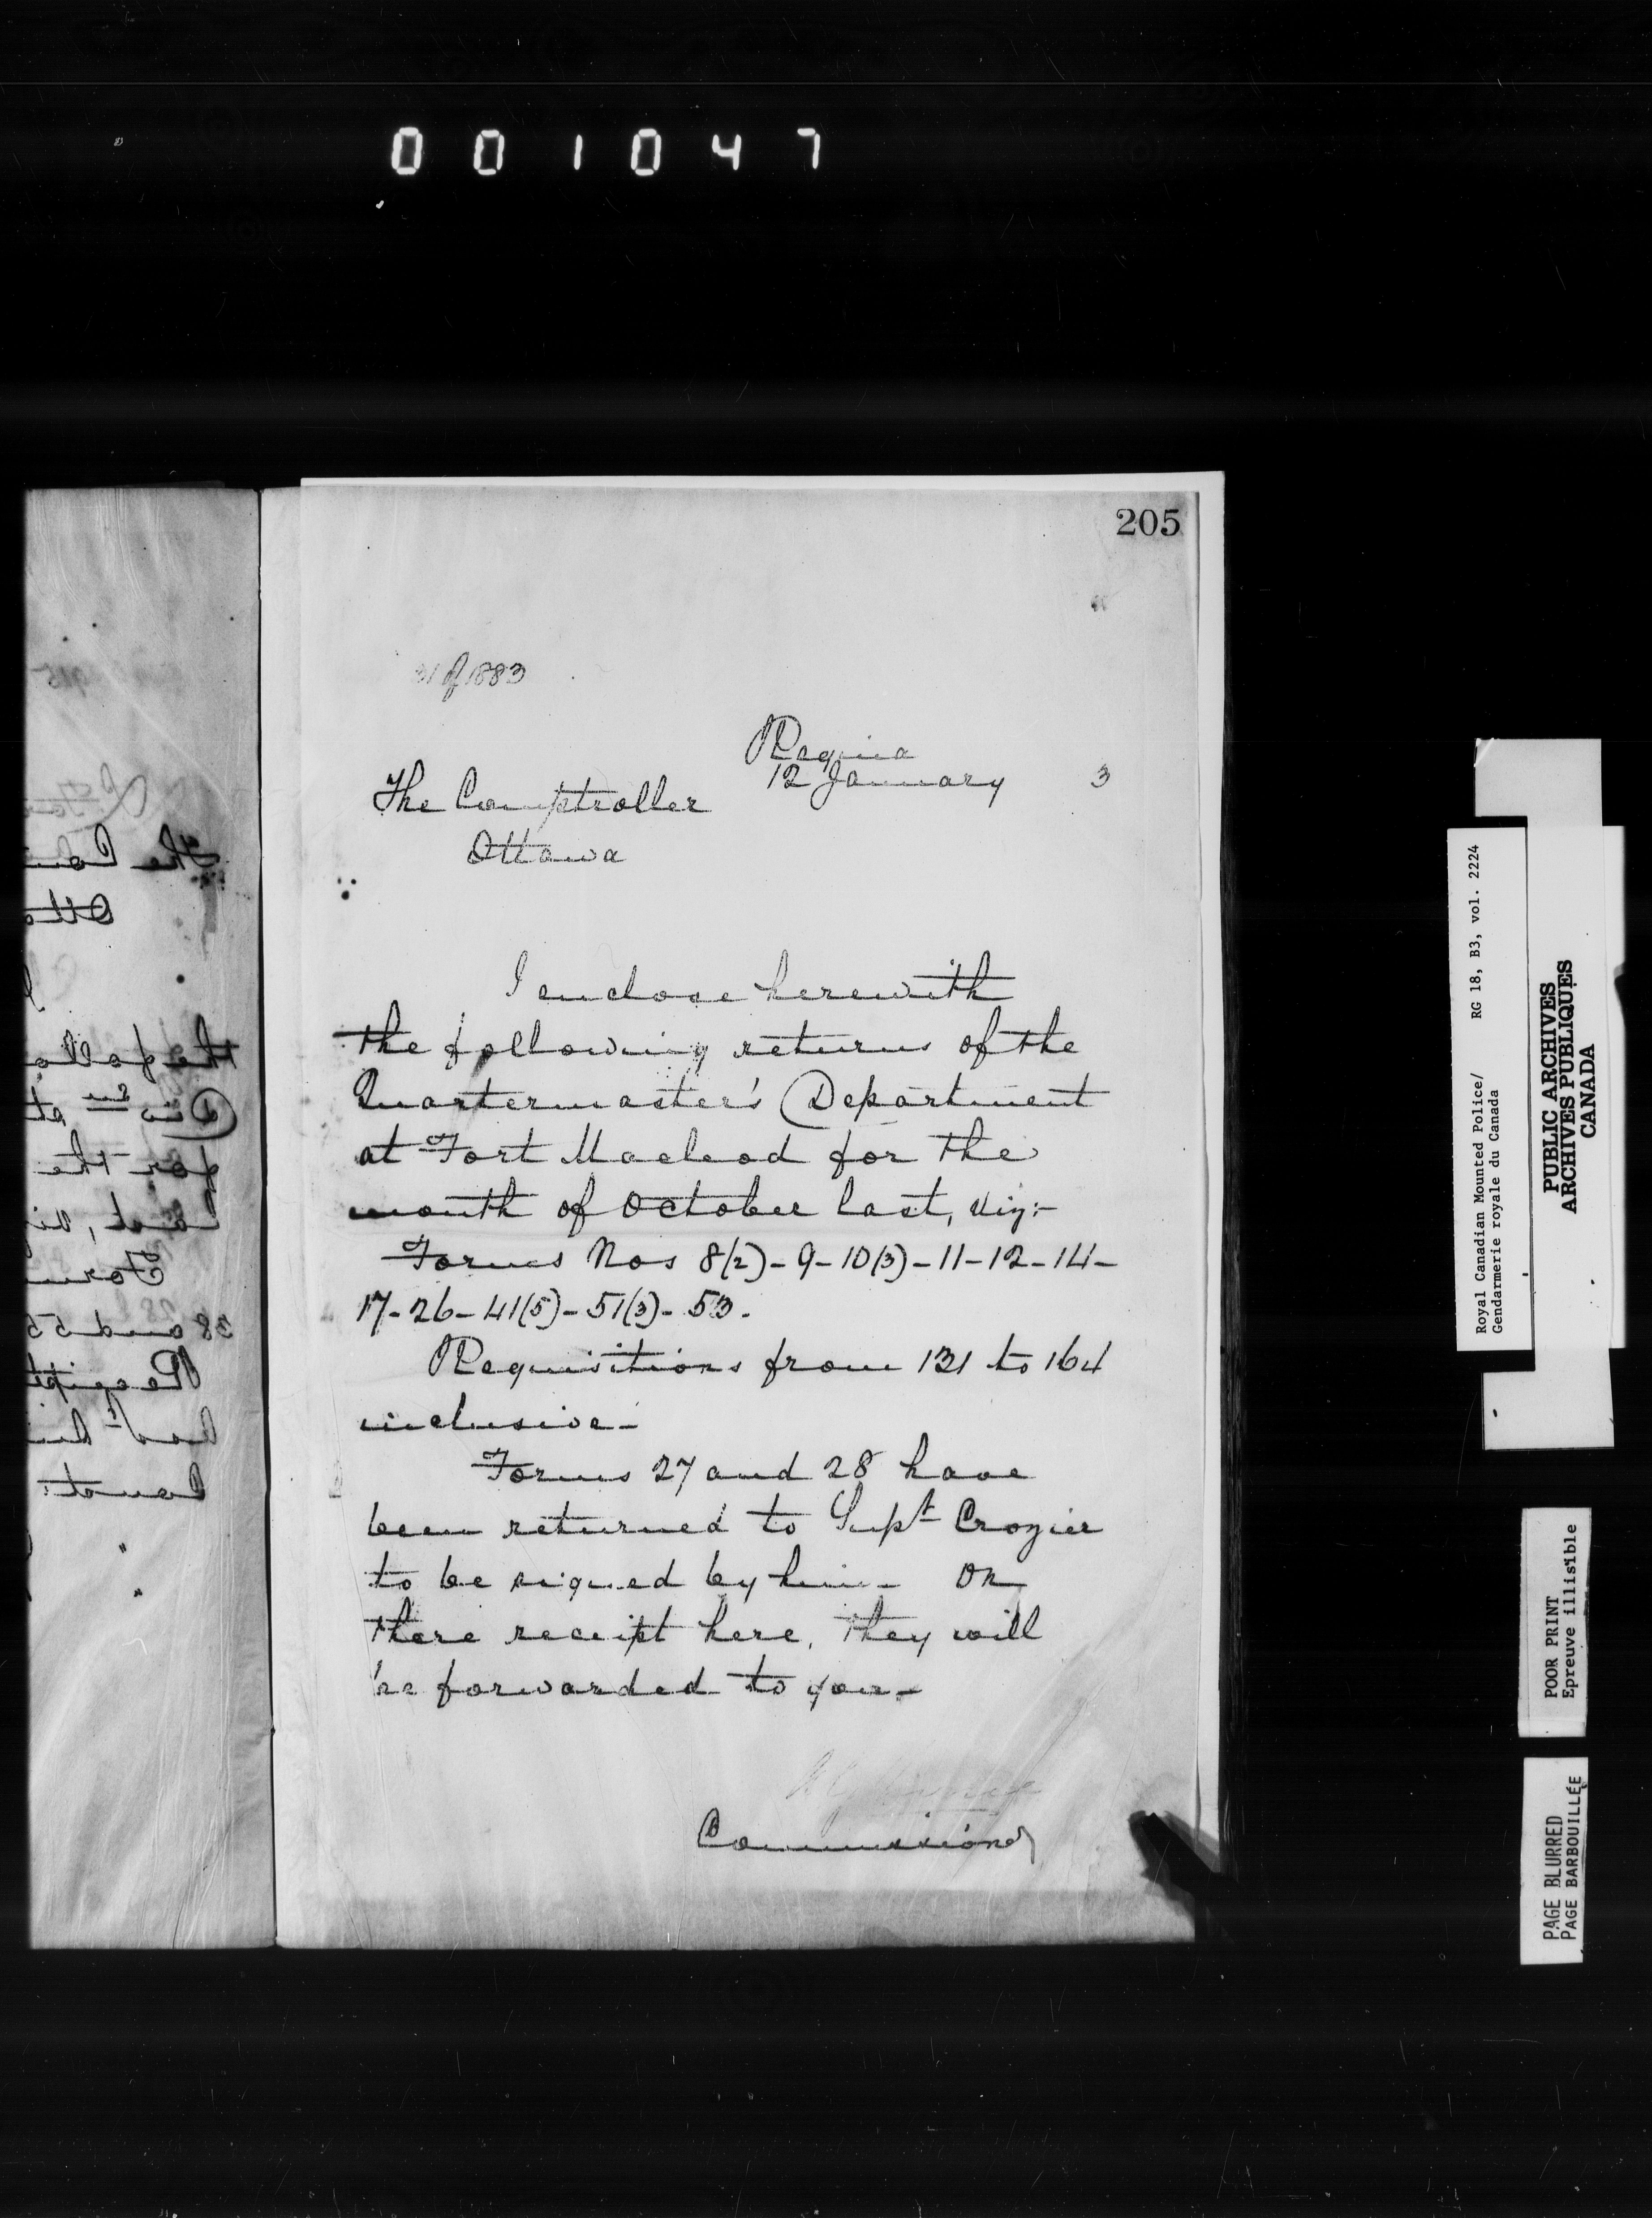 001047
205
31 of 1883
Regina
12 January 3
The Comptroller
Ottawa
I enclose herewith
the following returns of the
Quartermaster's Department
at Fort Macleod for the
month of October last, viz:-
Forms Nos 8(2)-9-10(3)-11-12-14-
17-26-41(5)-51(3)-53.
Requisitions from 131 to 164
inclusive-
Forms 27 and 28 have
been returned to Supt Crozier
to be signed by him- On
there receipt here, they will
be forwarded to you-
Commissioner
Royal Canadian Mounted Police/ RG 18, B3, vol. 2224
Gendarmerie royale du Canada
PUBLIC ARCHIVES
ARCHIVES PUBLIQUES
CANADA
POOR PRINT
Epreuve illisible
PAGE BLURRED
PAGE BARBOUILLÉE